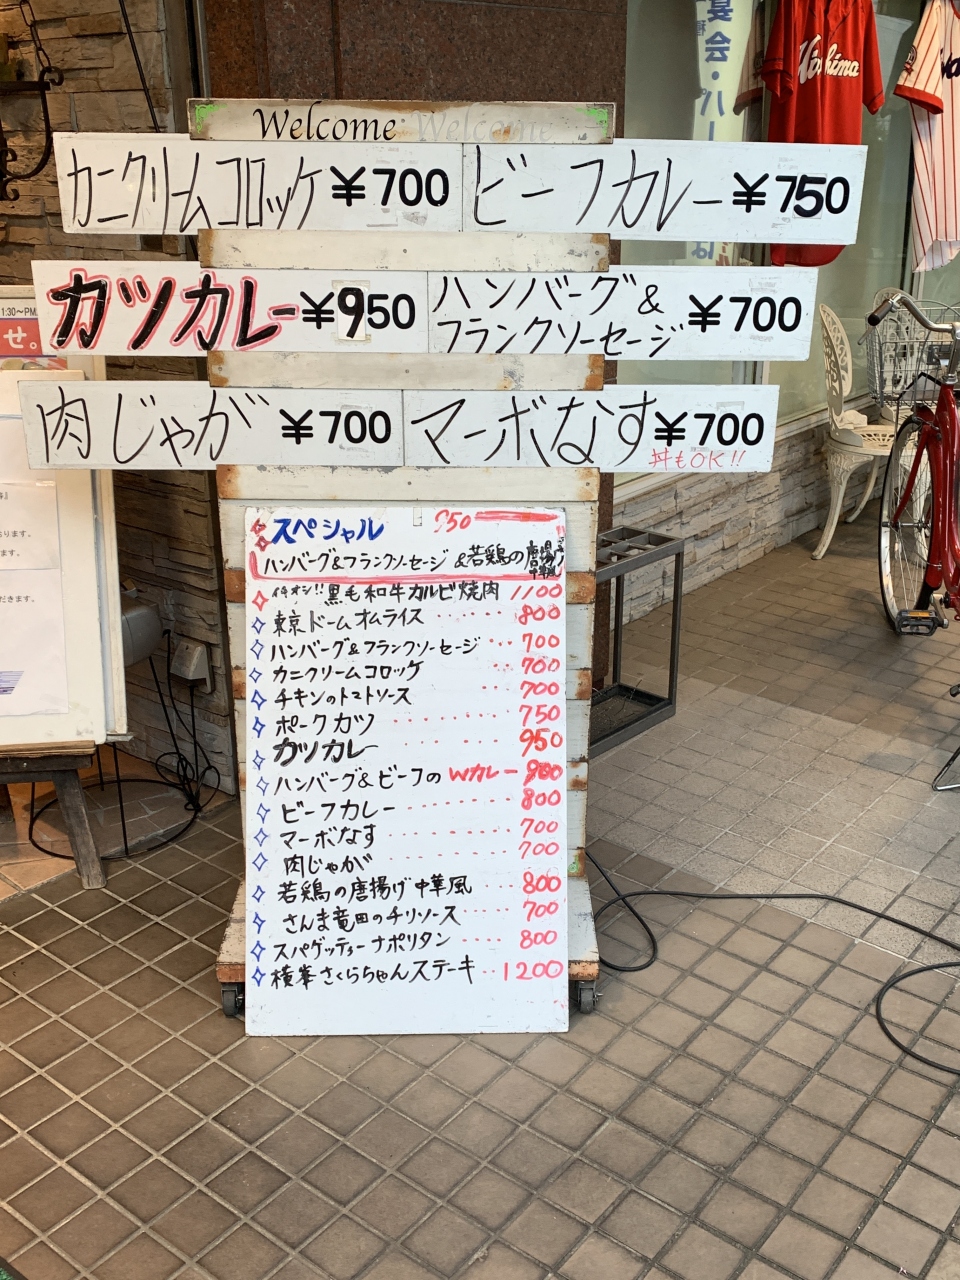 宴会・パー
Hiroshima
Welcome Welcome
カニクリームコロッケ ¥700
ビーフカレー ¥750
1:30～PM
せ。
カツカレー ¥950
ハンバーグ&
フランクソーセージ ¥700
肉じゃが ¥700
マーボなす ¥700
丼もOK!!
おります。
ます。
だきます。
スペシャル 950
ハンバーグ&フランクソーセージ&若鶏の唐揚げ
中華風
イチオシ!!黒毛和牛カルビ焼肉 1100
東京ドームオムライス 800
ハンバーグ&フランクソーセージ 700
カニクリームコロッケ 700
チキンのトマトソース 700
ポークカツ 750
カツカレー 950
ハンバーグ&ビーフのWカレー 900
ビーフカレー 800
マーボなす 700
肉じゃが 700
若鶏の唐揚げ中華風 800
さんま竜田のチリソース 700
スパゲッティーナポリタン 800
横峯さくらちゃんステーキ 1200